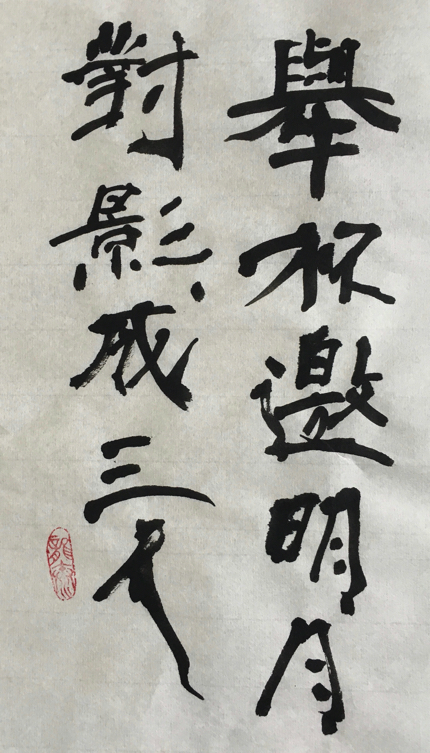 舉杯邀明月
對影成三人